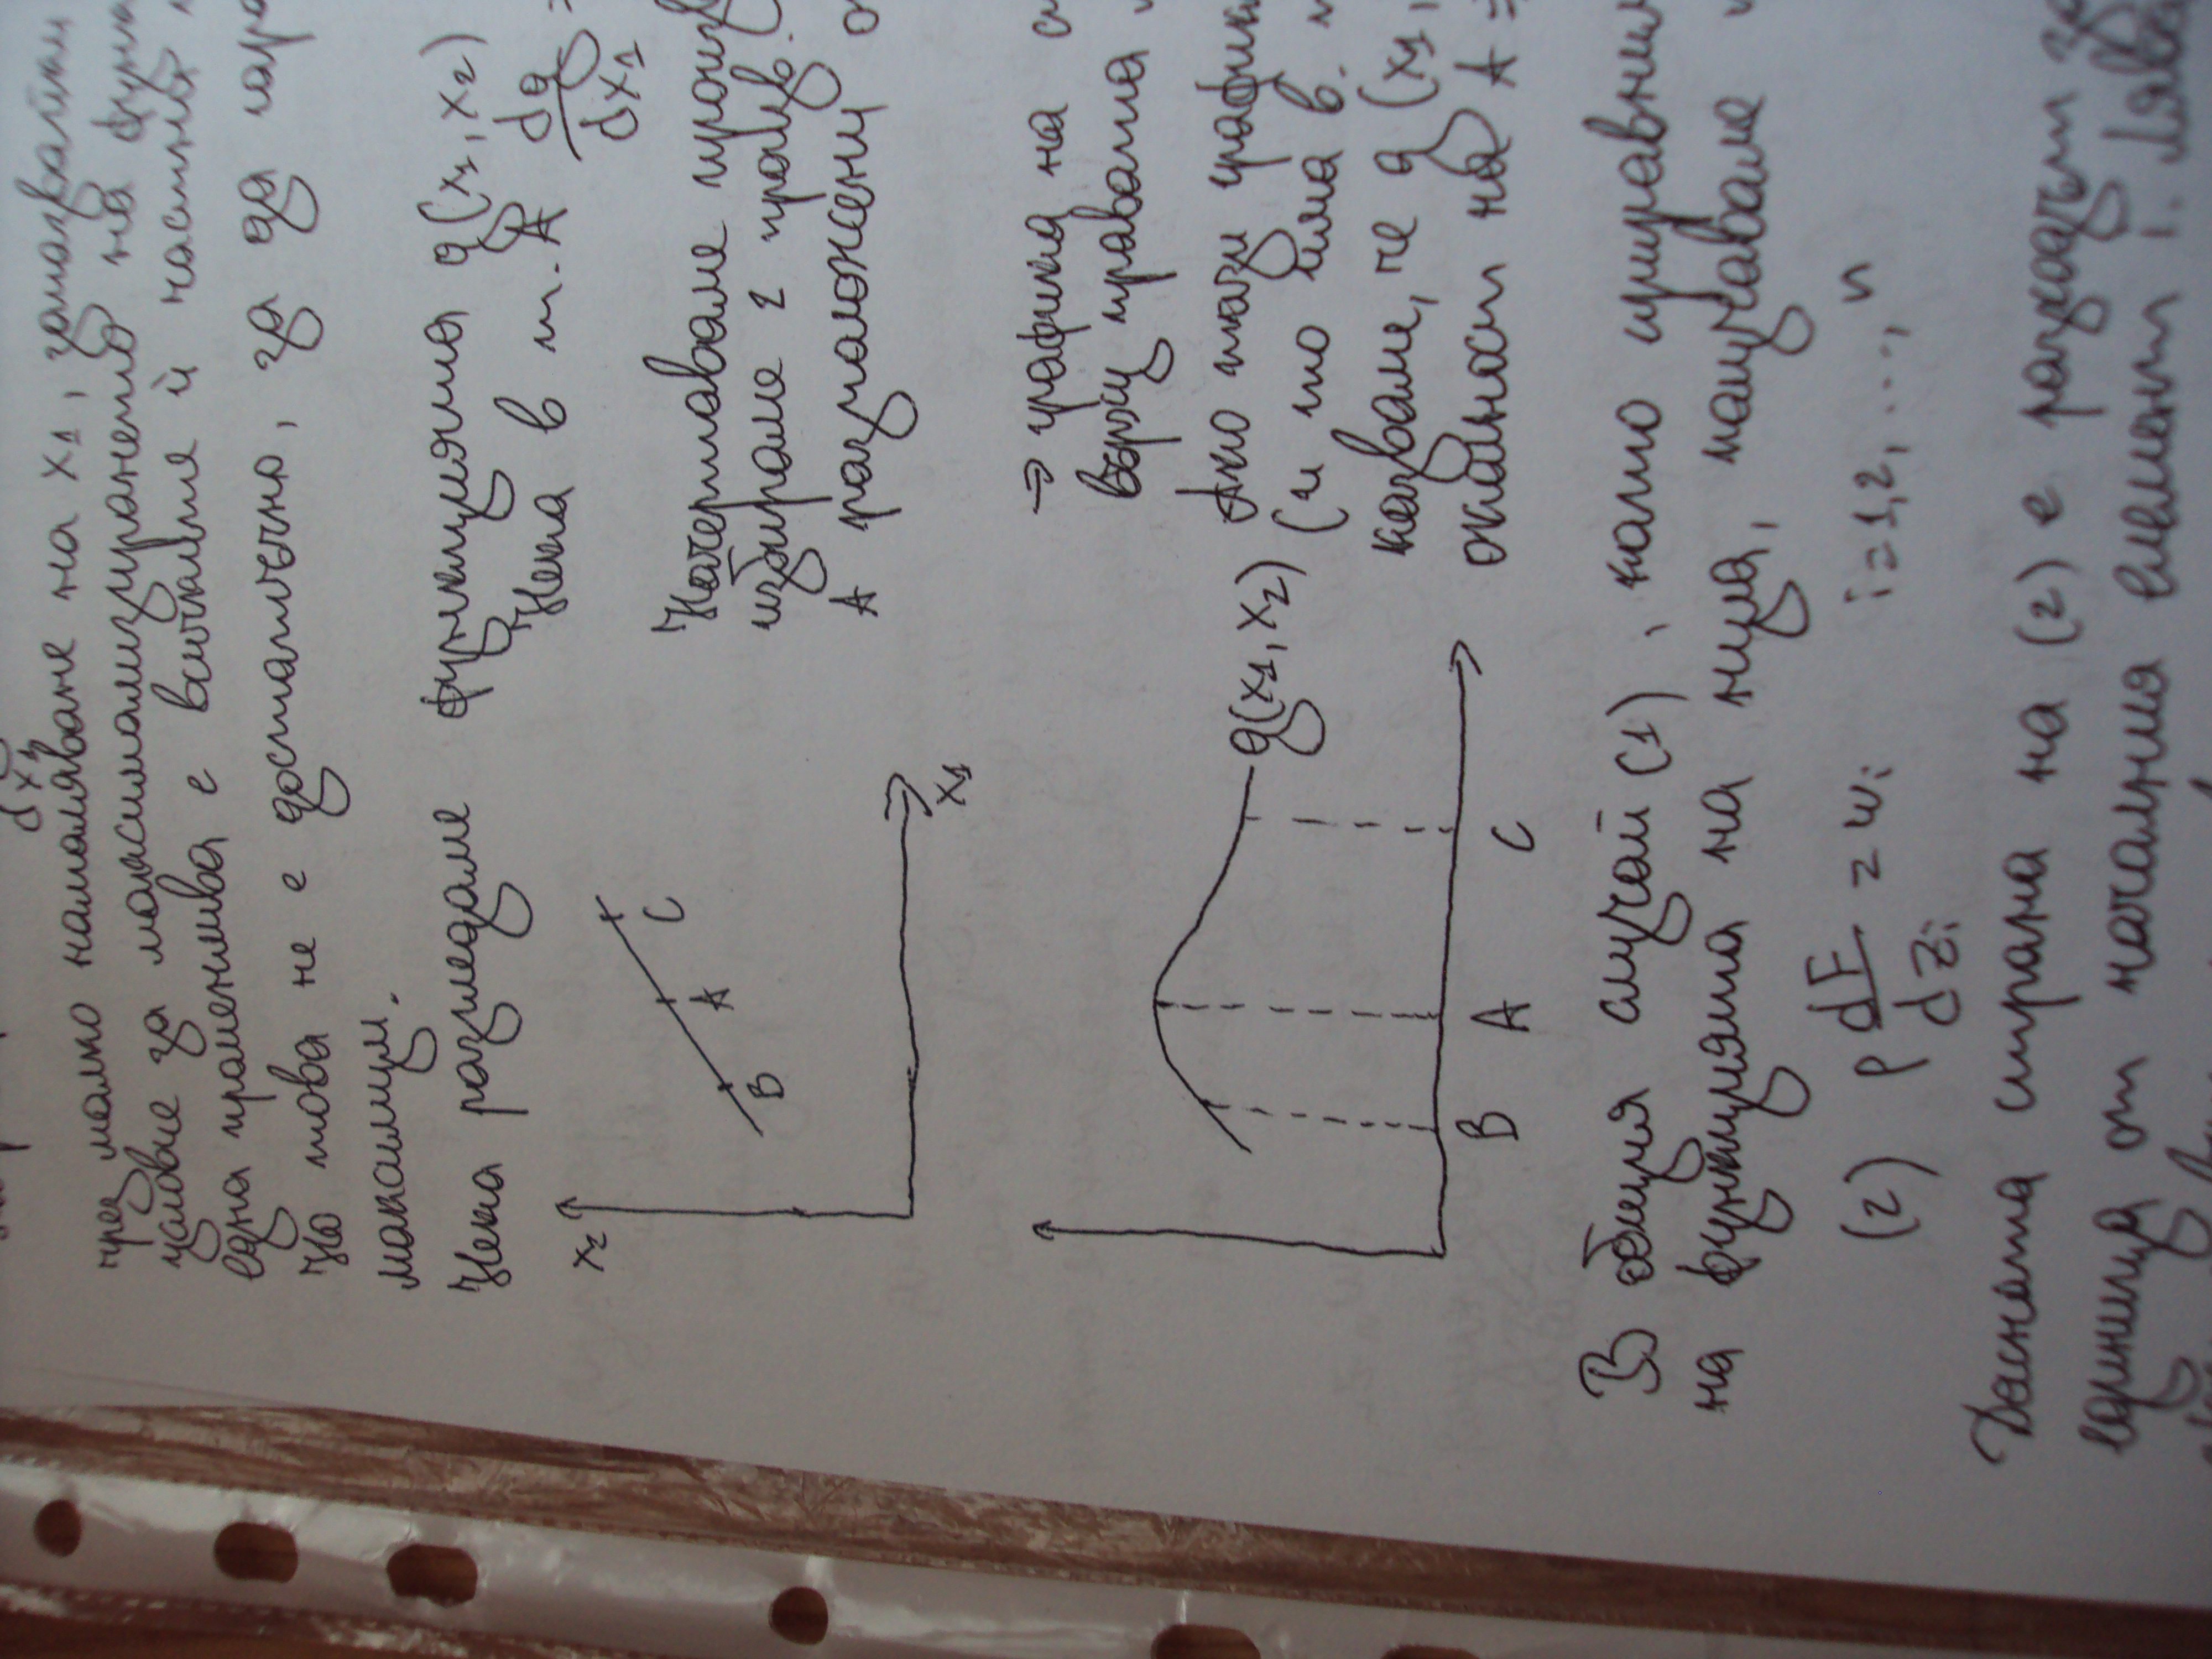 dx₁
чрез малко намаляване на x₁, запазвайки
условие за максимизирането на функ
една променлива е всичките ѝ частни
Но това не е достатъчно, за да гара
максимум.
Нека разгледаме функцията g(x₁, x₂)
Нека в т. A dg/dx₁ =
x₂
B A C
x₁
Начертаваме произв
избираме 2 произв.
A разположени
→ графика на
върху правата
Ако тази график
(и то има в.
казваме, че g(x₁,
околност на A =
g(x₁, x₂)
B A C
В общия случай (1), като приравним
на функцията на нула, получаваме
(2) p dF/dzᵢ = wᵢ i = 1, 2, ..., n
Дясната страна на (2) е разходът за
единица от началния елемент i. Лява